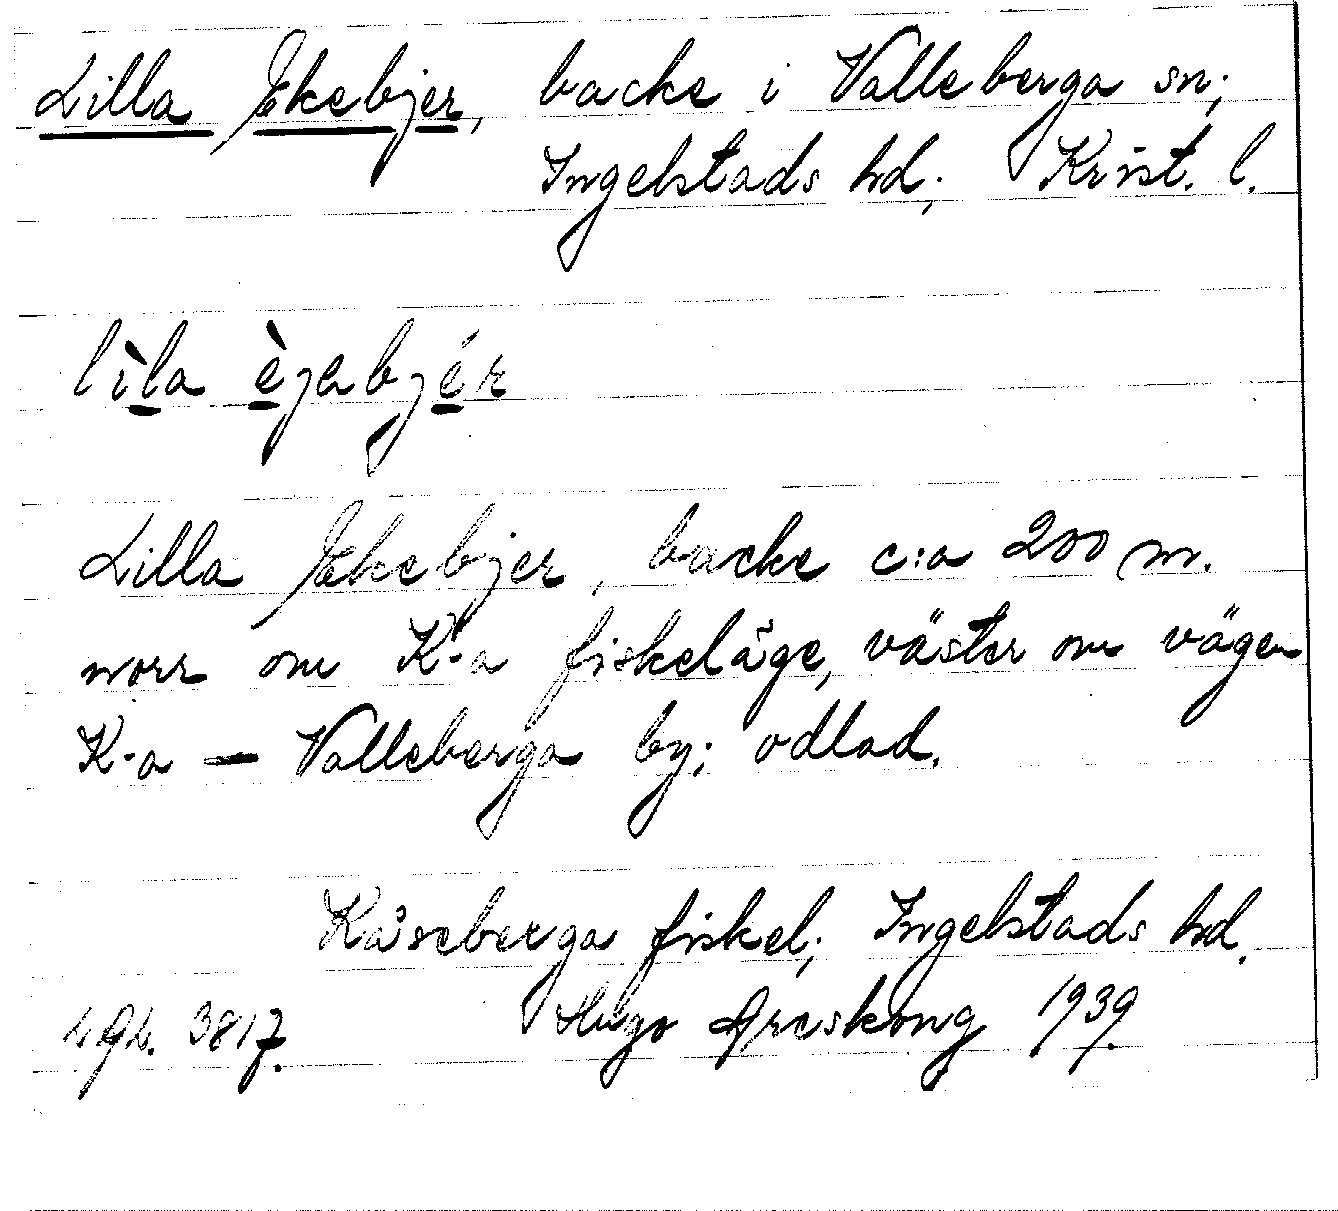 Lilla Ekebjer, backe i Valleberga sn;
Ingelstads hd; Krist. l.
lìla èjabjér
Lilla Ekebjer, backe c:a 200 m.
norr om K-a fiskeläge, väster om vägen
K-a — Valleberga by; odlad.
Kåseberga fiskel; Ingelstads hd.
3817. Hugo Areskong 1939.